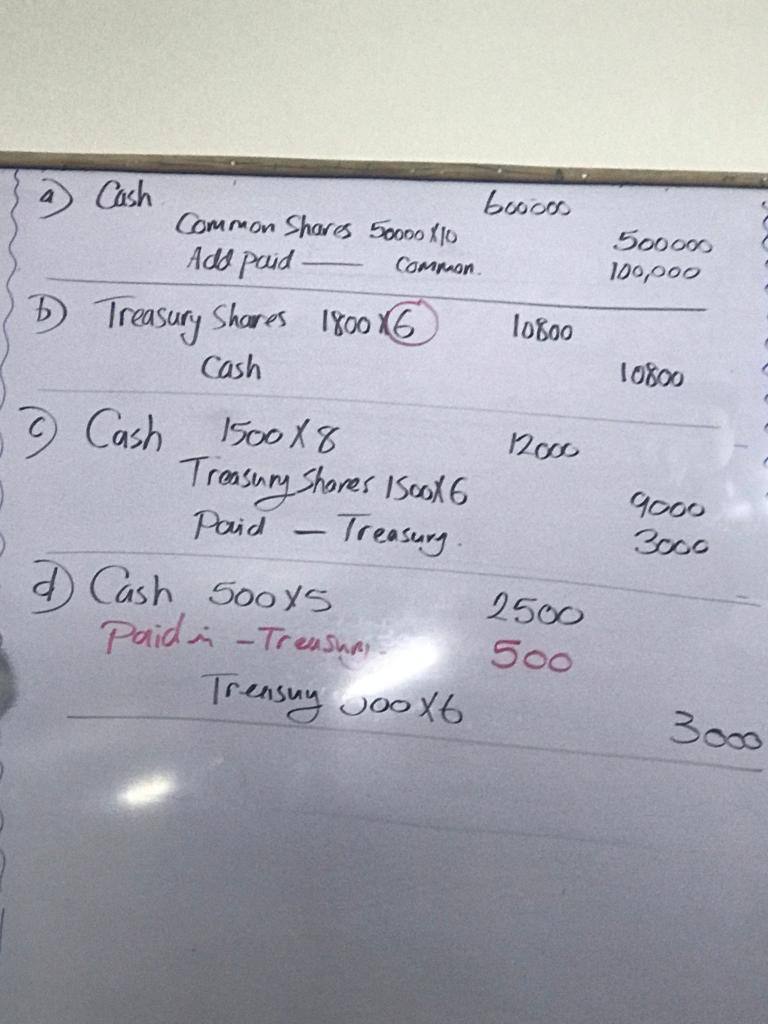 a) Cash 600000
Common Shares 50000 X 10 500000
Add paid — Common. 100,000
b) Treasury Shares 1800 X 6 10800
Cash 10800
c) Cash 1500 X 8 12000
Treasury Shares 1500 X 6 9000
Paid — Treasury. 3000
d) Cash 500 X 5 2500
Paid in - Treasury 500
X 6 3000